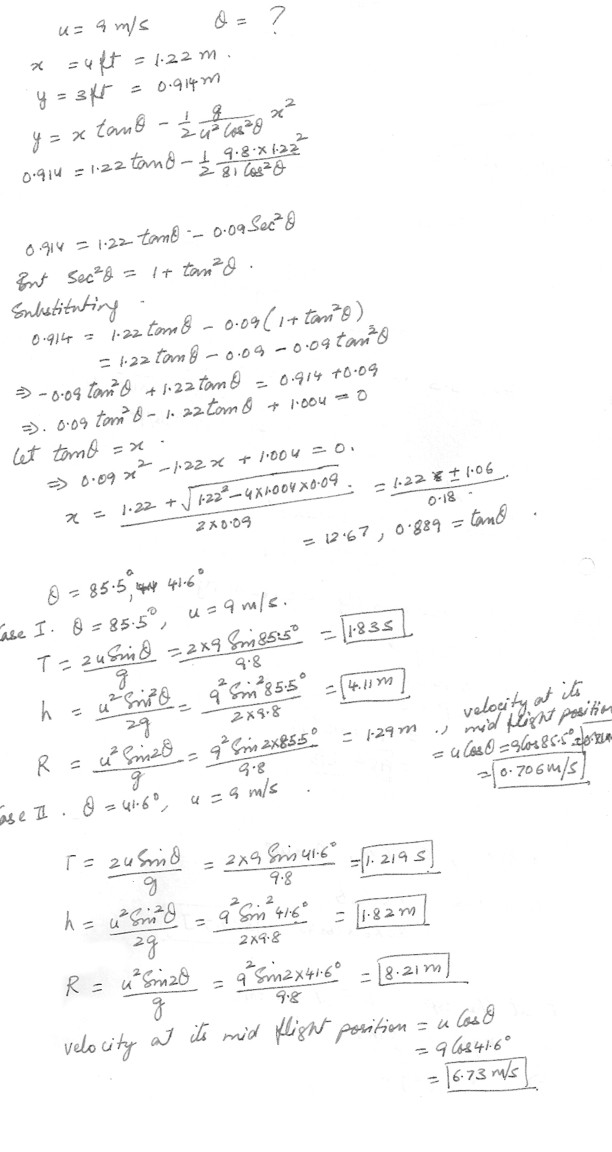 u = 9 m/s θ = ?
x = 4ft = 1.22 m.
y = 3ft = 0.914m
y = x tanθ - 1/2 g/(u² Cos²θ) x²
0.914 = 1.22 tanθ - 1/2 (9.8 × 1.22²)/(81 Cos²θ)
0.914 = 1.22 tanθ - 0.09 Sec²θ
But Sec²θ = 1 + tan²θ.
Substituting
0.914 = 1.22 tanθ - 0.09 (1 + tan²θ)
= 1.22 tanθ - 0.09 - 0.09 tan²θ
⇒ -0.09 tan²θ + 1.22 tanθ = 0.914 + 0.09
⇒. 0.09 tan²θ - 1.22 tanθ + 1.004 = 0
Let tanθ = x.
⇒ 0.09 x² - 1.22 x + 1.004 = 0.
x = (1.22 + √(1.22² - 4×1.004×0.09))/(2×0.09) = (1.22 ± 1.06)/0.18.
= 12.67, 0.889 = tanθ.
θ = 85.5°, 41.6°
ase I. θ = 85.5°, u = 9 m/s.
T = 2u Sinθ/g = 2×9 Sin 85.5°/9.8 = 1.83 s
h = u² Sin²θ/2g = 9² Sin² 85.5°/(2×9.8) = 4.11 m
R = u² Sin2θ/g = 9² Sin 2×85.5°/9.8 = 1.29 m., velocity at its
mid flight position
= u Cosθ = 9 Cos 85.5°
= 0.706 m/s
ase II. θ = 41.6°, u = 9 m/s.
T = 2u Sinθ/g = 2×9 Sin 41.6°/9.8 = 1.219 s
h = u² Sin²θ/2g = 9² Sin² 41.6°/(2×9.8) = 1.82 m
R = u² Sin2θ/g = 9² Sin 2×41.6°/9.8 = 8.21 m
velocity at its mid flight position = u Cosθ
= 9 Cos 41.6°
= 6.73 m/s.